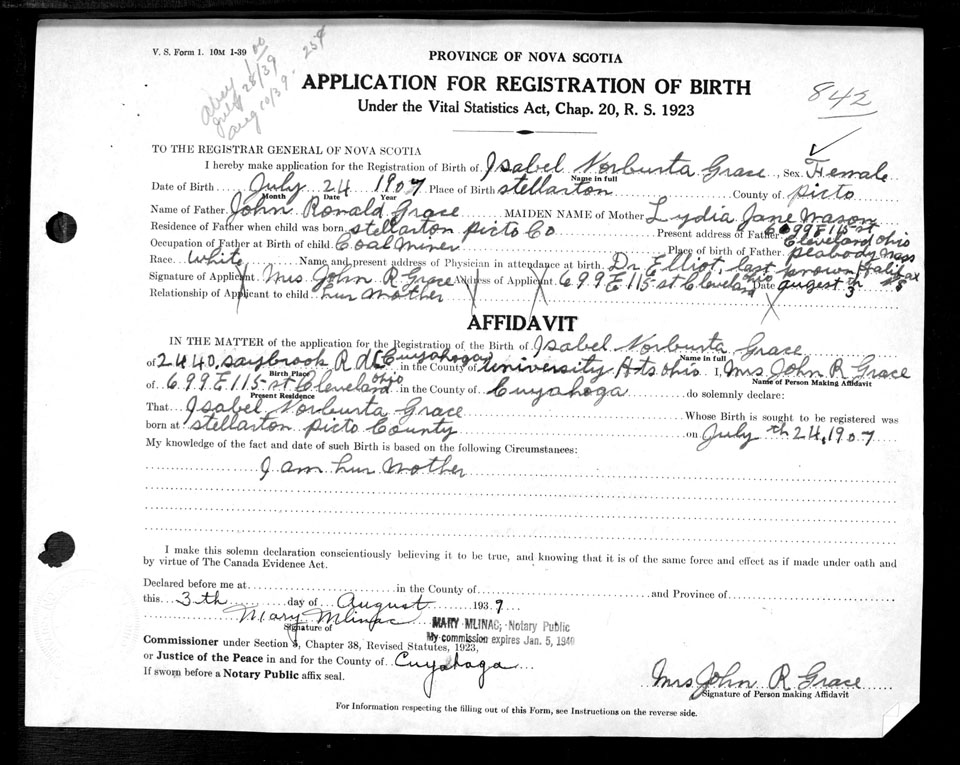 V. S. Form 1. 10M 1-39
1 00
25¢
July 28/39
Aug 10/39
PROVINCE OF NOVA SCOTIA
APPLICATION FOR REGISTRATION OF BIRTH
Under the Vital Statistics Act, Chap. 20, R. S. 1923
842
TO THE REGISTRAR GENERAL OF NOVA SCOTIA
I hereby make application for the Registration of Birth of Isabel Norburta Grace, Sex Female
Name in full
Date of Birth July 24 1907 Place of Birth stellarton County of picto
Month Date Year
Name of Father John Ronald Grace MAIDEN NAME of Mother Lydia Jane Mason
Residence of Father when child was born stellarton picto Co Present address of Father 699 E 115-st Cleveland Ohio
Occupation of Father at Birth of child Coal Miner Place of birth of Father peabody Mass
Race White Name and present address of Physician in attendance at birth Dr Elliot, last known Halifax
Signature of Applicant Mrs John R Grace Address of Applicant 699 E 115-st Cleveland Ohio Date augest 3
Relationship of Applicant to child hur Mother
AFFIDAVIT
IN THE MATTER of the application for the Registration of the Birth of Isabel Norburta Grace
Name in full
of 2440 saybrook Rd Cuyahoga in the County of university Hts ohio I, Mrs John R Grace
Birth Place Name of Person Making Affidavit
of 699 E 115-st Cleveland ohio in the County of Cuyahoga do solemnly declare:
Present Residence
That Isabel Norburta Grace Whose Birth is sought to be registered was
born at stellarton picto County on July th 24, 1907
My knowledge of the fact and date of such Birth is based on the following Circumstances:
I am hur Mother
I make this solemn declaration conscientiously believing it to be true, and knowing that it is of the same force and effect as if made under oath and
by virtue of The Canada Evidence Act.
Declared before me at in the County of and Province of
this 3th day of August 1939
Mary Mlinac MARY MLINAC, Notary Public
Signature of My commission expires Jan. 5, 1940
Commissioner under Section 4, Chapter 38, Revised Statutes, 1923,
or Justice of the Peace in and for the County of Cuyahoga
If sworn before a Notary Public affix seal.
Mrs John R Grace
Signature of Person making Affidavit
For Information respecting the filling out of this Form, see Instructions on the reverse side.